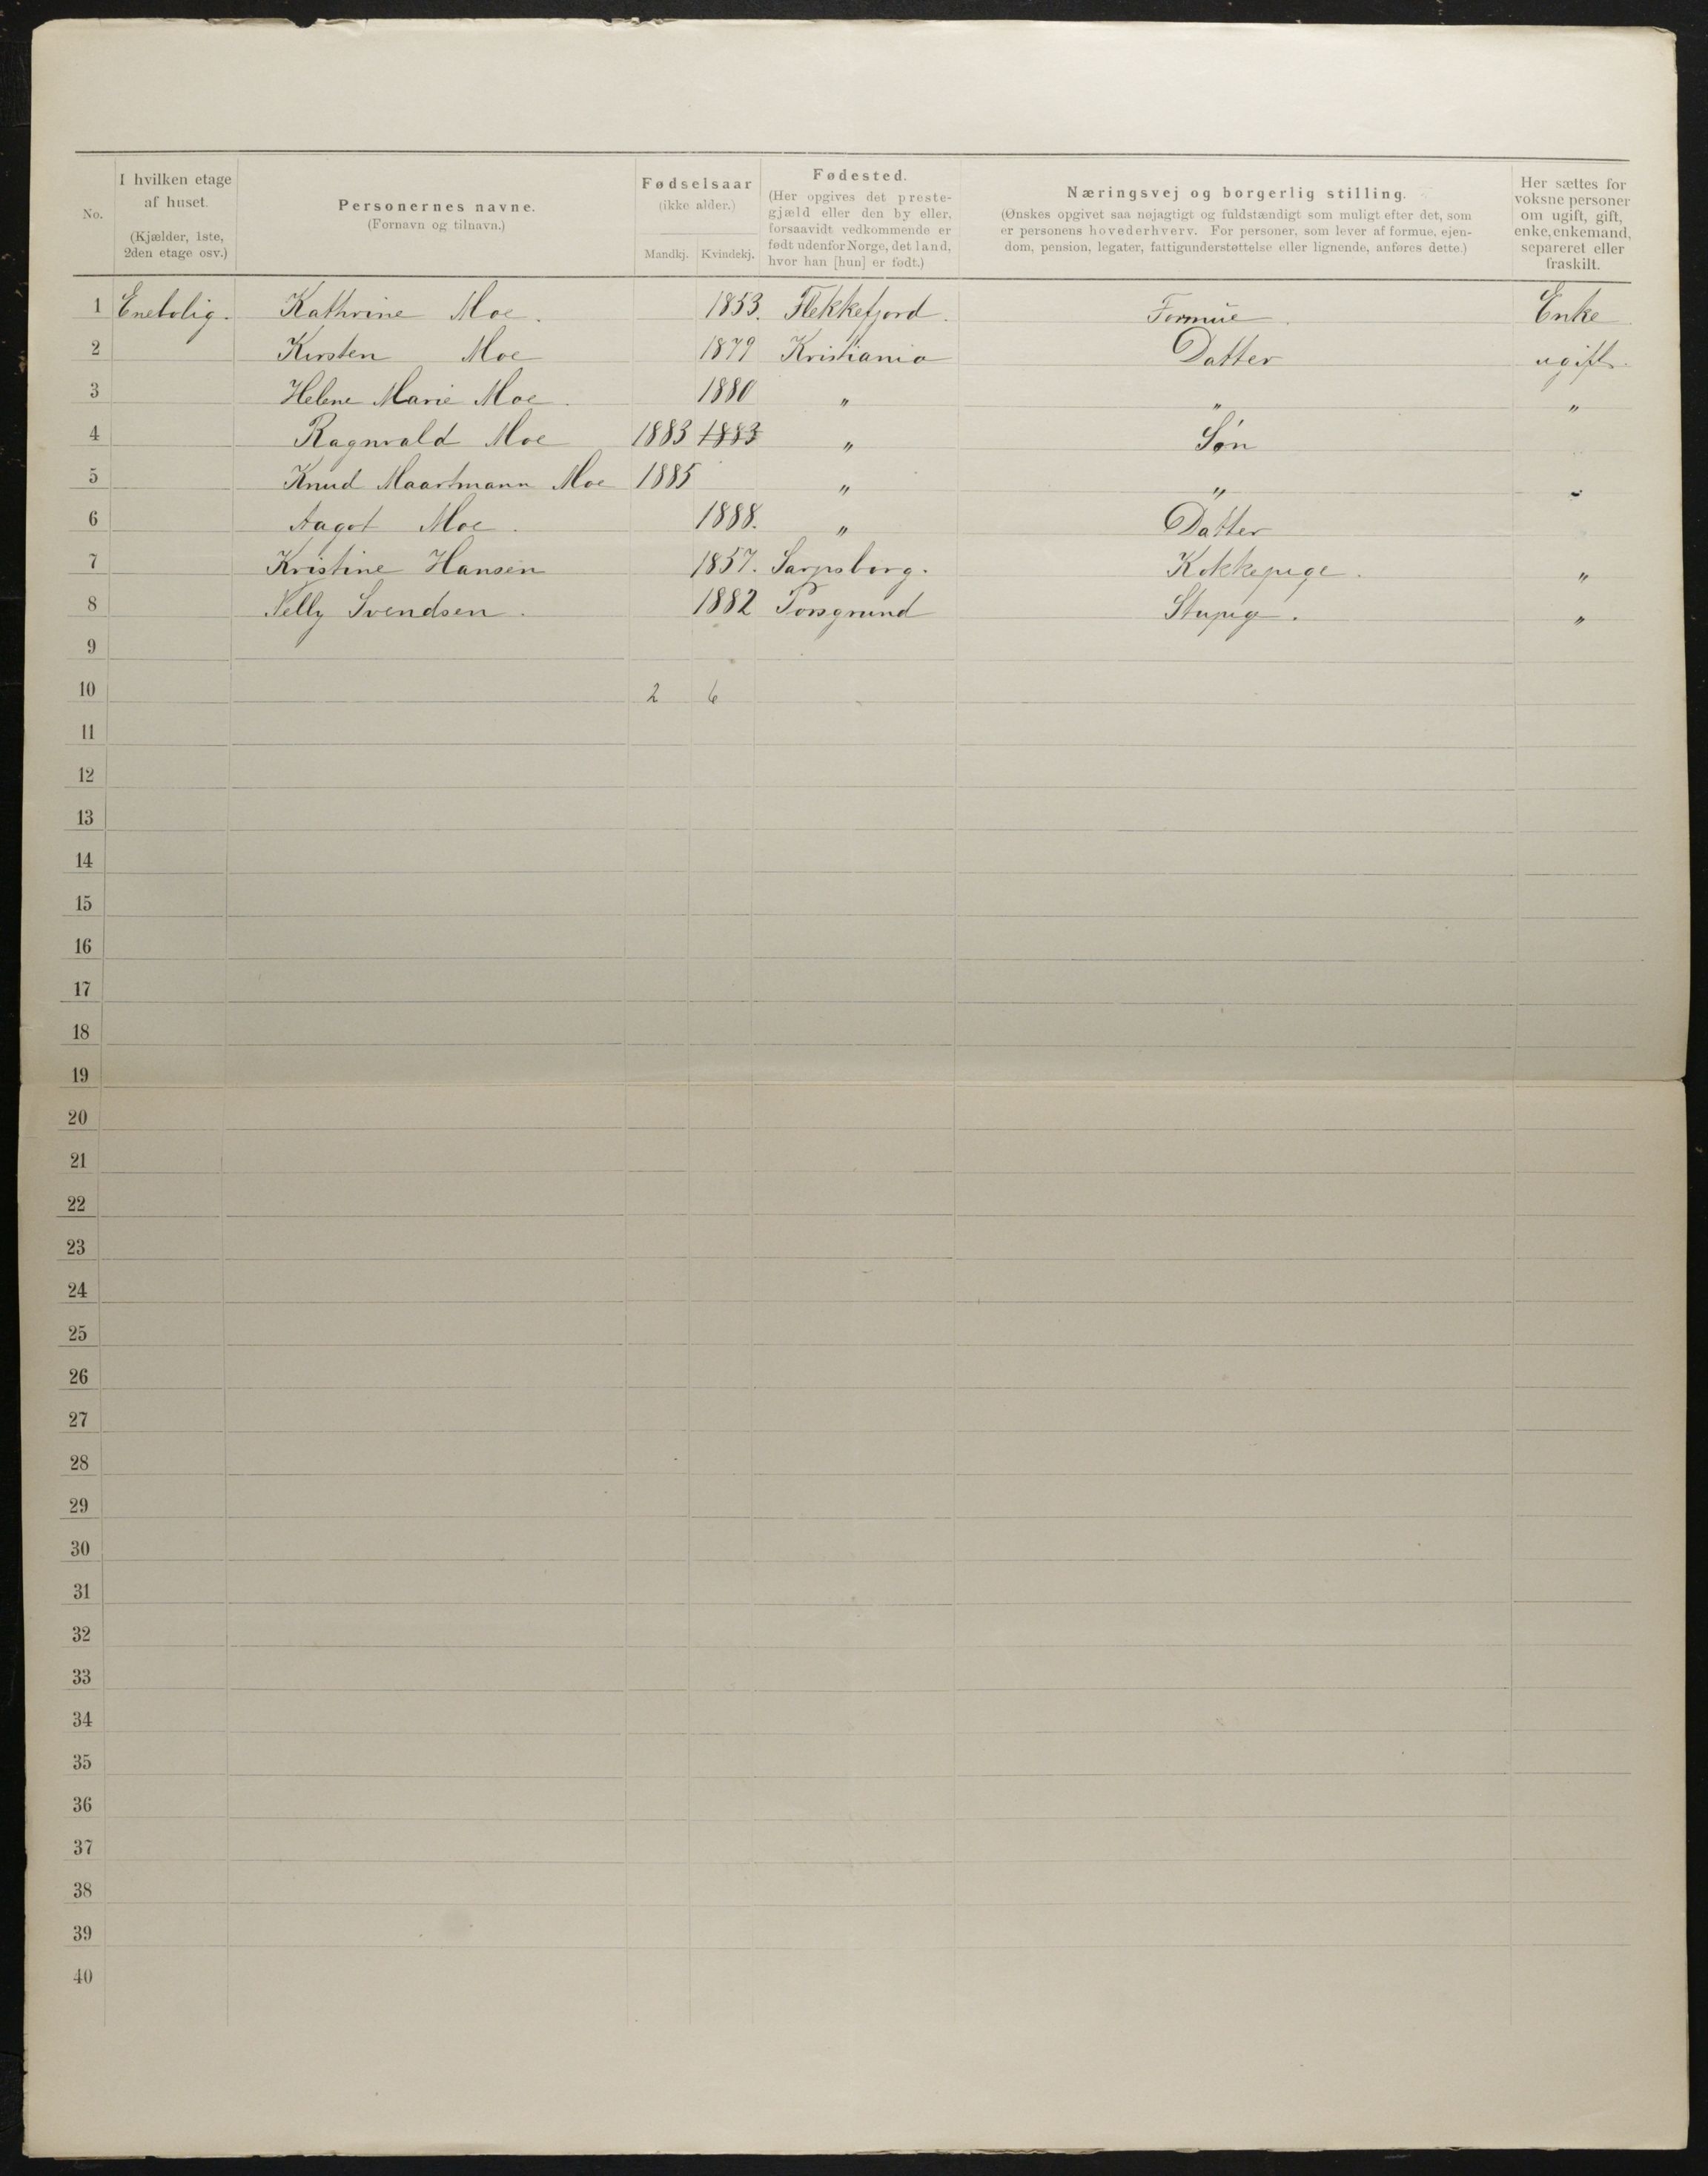 No.
I hvilken etage
af huset.
(Kjælder, 1ste,
2den etage osv.)
Personernes navne.
(Fornavn og tilnavn.)
Fødselsaar
(ikke alder.)
Mandkj. Kvindekj.
Fødested.
(Her opgives det preste-
gjæld eller den by eller,
forsaavidt vedkommende er
født udenfor Norge, det land,
hvor han [hun] er født.)
Næringsvej og borgerlig stilling.
(Ønskes opgivet saa nøjagtigt og fuldstændigt som muligt efter det, som
er personens hovederhverv. For personer, som lever af formue, ejen-
dom, pension, legater, fattigunderstøttelse eller lignende, anføres dette.)
Her sættes for
voksne personer
om ugift, gift,
enke, enkemand,
separeret eller
fraskilt.
1 Enebolig. Kathrine Moe. 1853. Flekkefjord. Formue. Enke
2 Kirsten Moe 1879 Kristiania Datter ugift.
3 Helene Marie Moe. 1880 " " "
4 Ragnvald Moe 1883 1883 " Søn
5 Knud Maartmann Moe 1885 " " "
6 Aagot Moe. 1888. " Datter
7 Kristine Hansen 1857. Sarpsborg. Kokkepige. "
8 Nelly Svendsen. 1882 Porsgrund Stupige. "
9
10 2 6
11
12
13
14
15
16
17
18
19
20
21
22
23
24
25
26
27
28
29
30
31
32
33
34
35
36
37
38
39
40